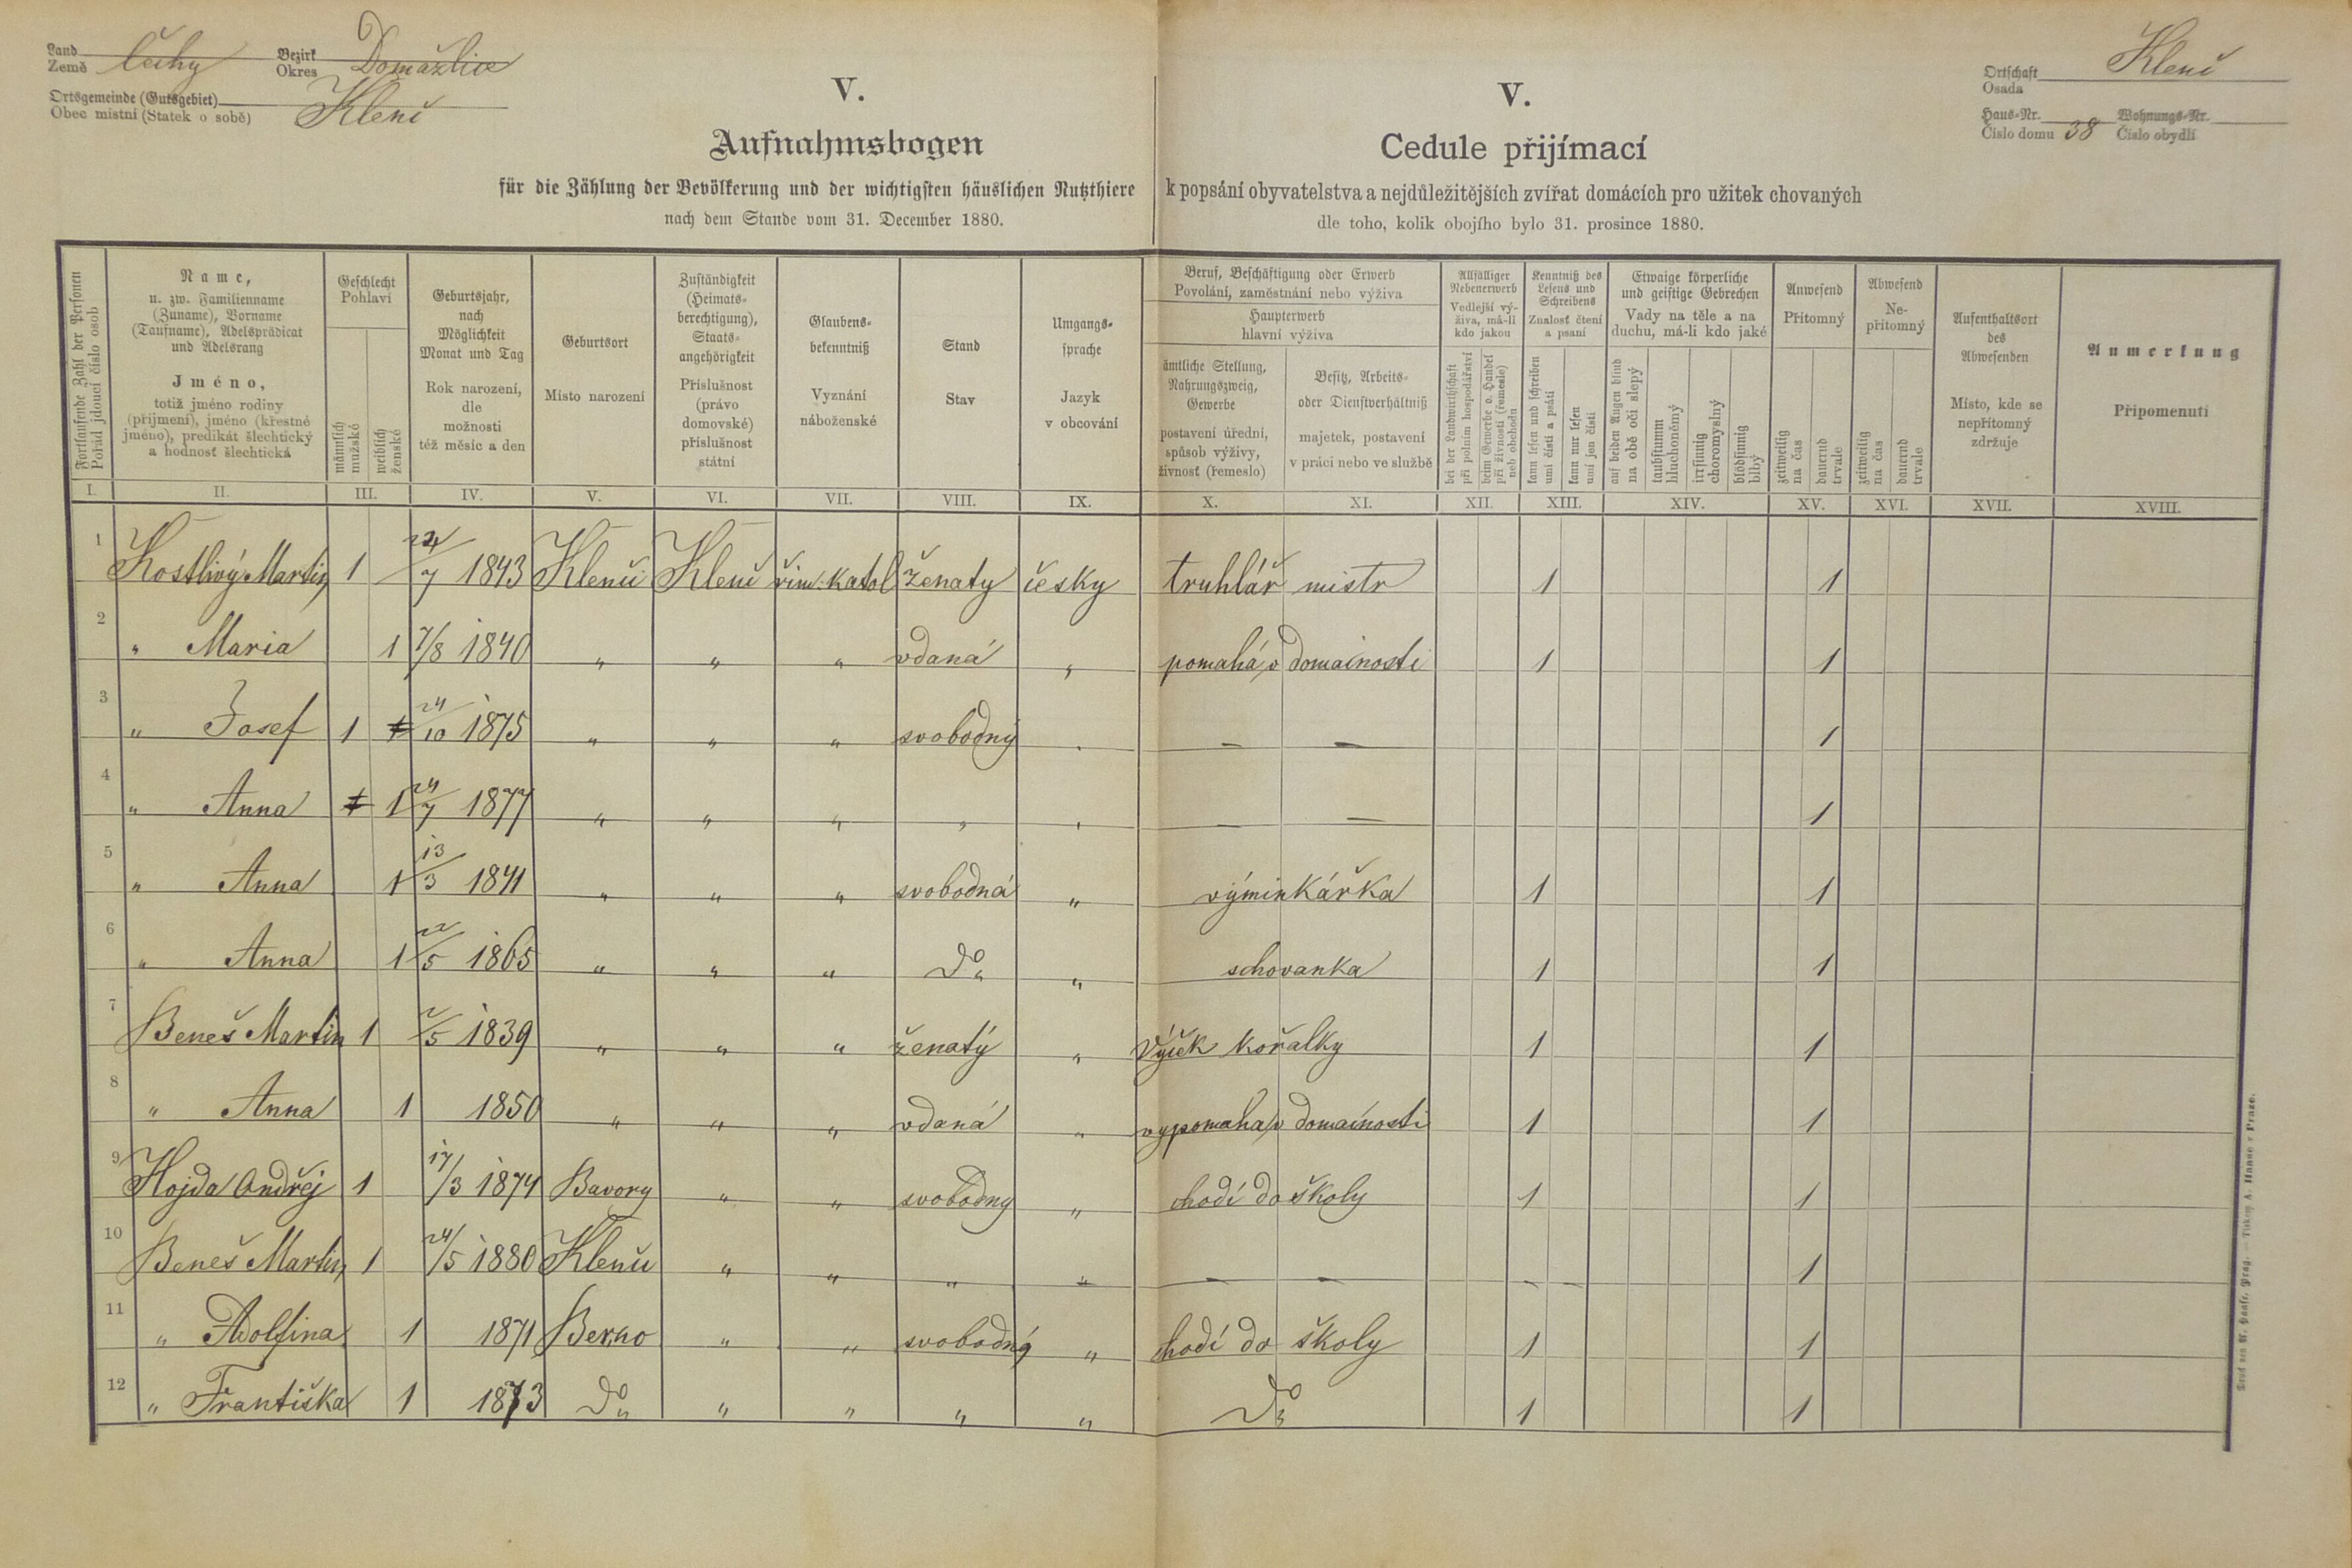 Land
Země Čechy
Bezirk
Okres Domažlice
Ortsgemeinde (Gutsgebiet)
Obec místní (Statek o sobě) Kleneč
V.
Aufnahmsbogen
für die Zählung der Bevölkerung und der wichtigsten häuslichen Nutzthiere
nach dem Stande vom 31. December 1880.
V.
Cedule přijímací
k popsání obyvatelstva a nejdůležitějších zvířat domácích pro užitek chovaných
dle toho, kolik obojího bylo 31. prosince 1880.
Ortschaft
Osada
Haus-Nr.
Číslo domu 38
Wohnungs-Nr.
Číslo obydlí
Fortlaufende Zahl der Personen
Pořád jdoucí číslo osob
Name,
u. zw. Familienname
(Zuname), Vorname
(Taufname), Adelsprädicat
und Adelsrang
Jméno,
totiž jméno rodiny
(příjmení), jméno (křestné
jméno), predikát šlechtický
a hodnosť šlechtická
Geschlecht
Pohlaví
männlich
mužské
weiblich
ženské
Geburtsjahr,
nach
Möglichkeit
Monat und Tag
Rok narození,
dle
možnosti
též měsíc a den
Geburtsort
Místo narození
Zuständigkeit
(Heimats-
berechtigung),
Staats-
angehörigkeit
Příslušnost
(právo
domovské)
příslušnost
státní
Glaubens-
bekenntniß
Vyznání
náboženské
Stand
Stav
Umgangs-
sprache
Jazyk
v obcování
Beruf, Beschäftigung oder Erwerb
Povolání, zaměstnání nebo výživa
Haupterwerb
hlavní výživa
ämtliche Stellung,
Nahrungszweig,
Gewerbe
postavení úřední,
spůsob výživy,
živnosť (řemeslo)
Besitz, Arbeits-
oder Dienstverhältniß
majetek, postavení
v práci nebo ve službě
Allfälliger
Nebenerwerb
Vedlejší vý-
živa, má-li
kdo jakou
bei der Landwirthschaft
při polním hospodářství
beim Gewerbe o. Handel
při živnosti (řemesle)
neb obchodu
Kenntniß des
Lesens und
Schreibens
Znalosť čtení
a psaní
kann lesen und schreiben
umí čísti a psáti
kann nur lesen
umí jen čísti
Etwaige körperliche
und geistige Gebrechen
Vady na těle a na
duchu, má-li kdo jaké
auf beiden Augen blind
na obě oči slepý
taubstumm
hluchoněmý
irrsinnig
choromyslný
blödsinnig
blbý
Anwesend
Přítomný
zeitweilig
na čas
dauernd
trvale
Abwesend
Ne-
přítomný
zeitweilig
na čas
dauernd
trvale
Aufenthaltsort
des
Abwesenden
Místo, kde se
nepřítomný
zdržuje
Anmerkung
Připomenutí
I. II. III. IV. V. VI. VII. VIII. IX. X. XI. XII. XIII. XIV. XV. XVI. XVII. XVIII.
1 Kostlivý Martin 1 1843 řím. katol ženatý česky truhlář mistr 1 1
2 " Maria 1 7/8 1840 " " " vdaná " pomahá v domácnosti 1 1
3 " Josef 1 24/10 1875 " " " svobodný " — — 1
4 " Anna 1 24/7 1877 " " " " " — — 1
5 " Anna 1 13/3 1841 " " " svobodná " výminkářka 1 1
6 " Anna 1 22/5 1865 " " " Do " schovanka 1 1
7 Beneš Martin 1 2/5 1839 " " " ženatý " Výček kořalky 1 1
8 " Anna 1 1850 " " " vdaná " vypomaha v domácnosti 1 1
9 Hojda Ondřej 1 17/3 1874 Bavory " " svobodný " chodí do školy 1 1
10 Beneš Martin 1 24/5 1880 " " " " — — — — 1
11 " Adolfina 1 1871 " " svobodný " chodí do školy 1 1
12 " Františka 1 1873 Do " " " " Do 1 1